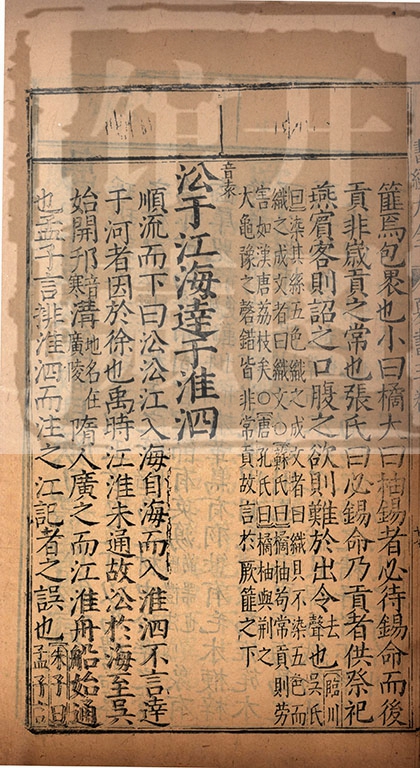 篚焉包裹也小曰橘大曰柚錫者必待錫命而後
貢非歲貢之常也張氏曰必錫命乃貢者供祭祀
燕賓客則詔之口腹之欲則難於出令去聲也臨川吳氏
曰染其絲五色織之成文者曰織貝不染五色而
織之成文者曰織文○蘇氏曰橘柚苟常貢則勞
害如漢唐荔枝矣○唐孔氏曰橘柚與荊之
大龜豫之磬錯皆非常貢故言於厥篚之下
音
㳂于江海達于淮泗
順流而下曰㳂㳂江入海自海而入淮泗不言達
于河者因於徐也禹時江淮未通故㳂於海至吳
始開邗音寒溝地名在廣陵隋人廣之而江淮舟船始通
也孟子言排淮泗而注之江記者之誤也朱子曰孟子言